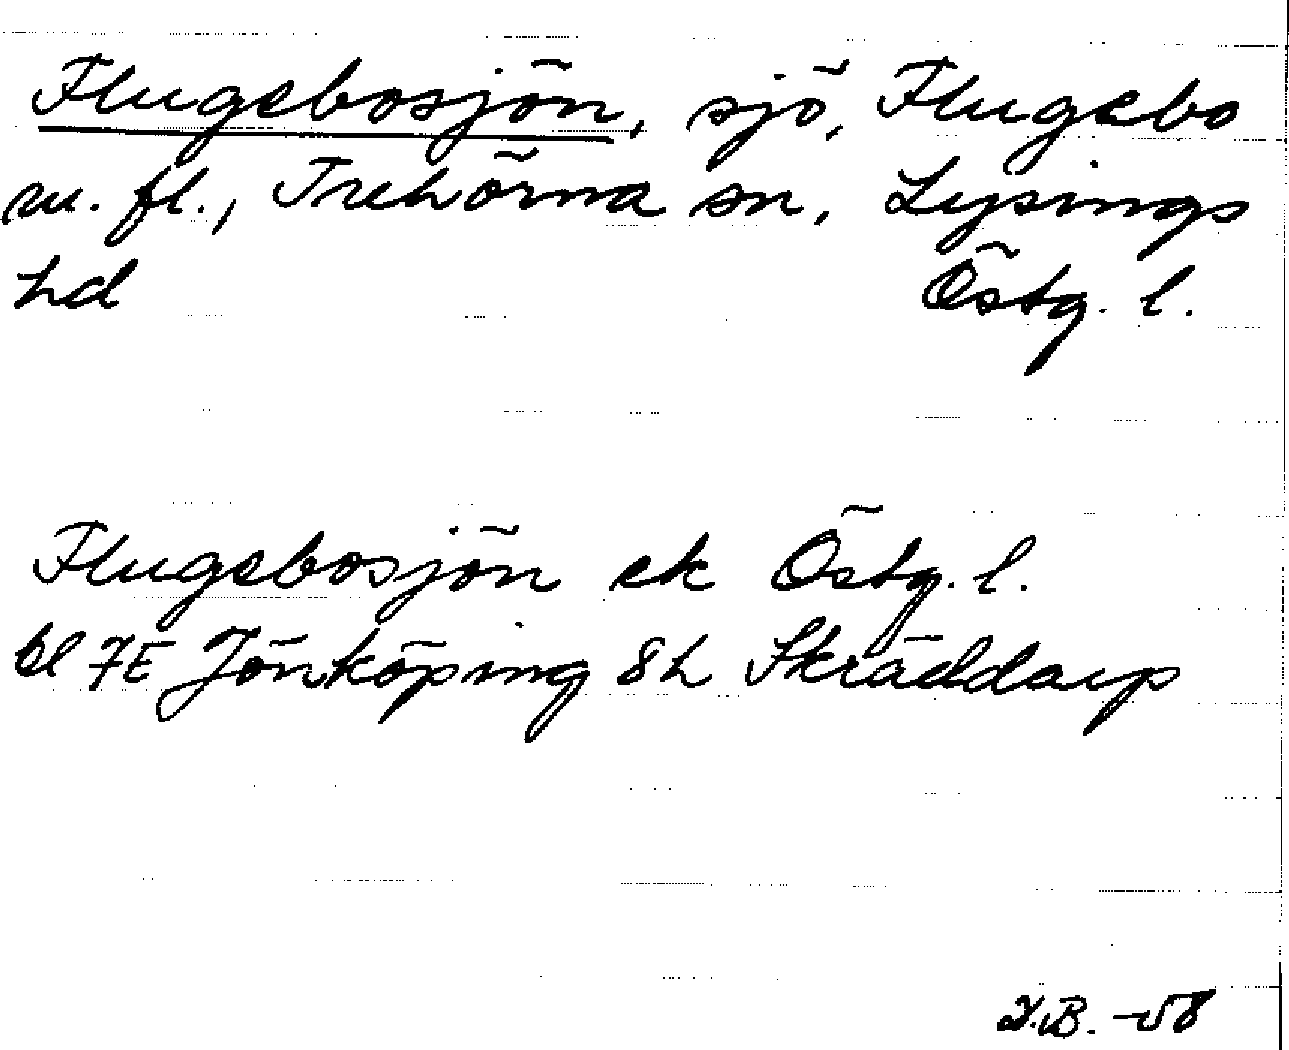 Flugebosjön, sjö, Flugebo
m. fl., Trehörna sn, Lysings
hd Östg. l.
Flugebosjön ek Östg. l.
bl 7E Jönköping 8h Skräddarp
-58